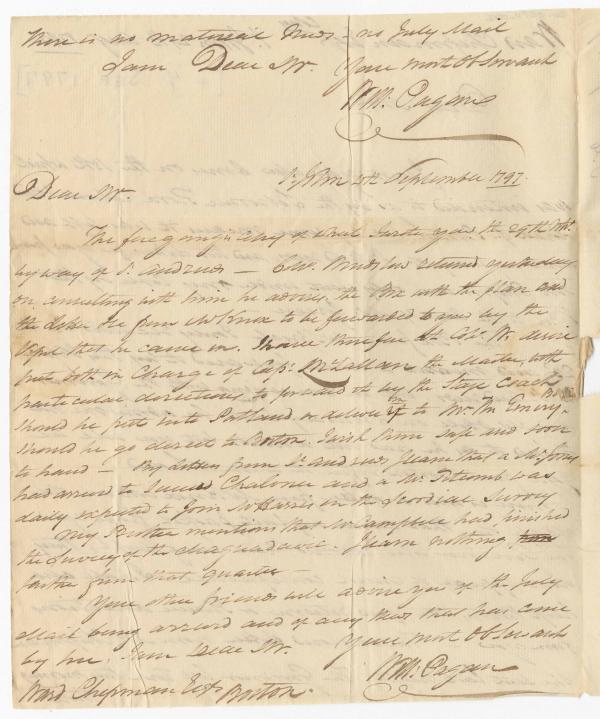 There is no material News - no July Mail
I am Dear Sir. Your most Obt Servant
Wm. Pagan
St. John 5th September 1797
Dear Sir.
The foregoing is Copy of what I wrote you the 29th Ulto.
by way of St. Andrews - Colo. Winslow returned yesterday
on consulting with him he advises the Box with the plan and
the Letter from Mr Knox to be forwarded to you by the
Vessel that he came in. I have therefore at Colo. W. desire
put both in Charge of Capt. McLallan the Master, with
particular directions to forward it by the Stage Coach
should he put into Portland or deliver it to Mr. Wm Emery.
should he go direct to Boston. I wish them safe and soon
to hand - By Letters from St. Andrews I learn that a
had arrived to succeed Chaloner and a Mr. Titcomb was
daily expected to join Mr Harris in the Scoodiac Survey
My Brother mentions that Mr Campbell had finished
the Survey of the Magaguadavic. I learn nothing
farther from that quarter -
Your other friends will advise you of the July
Mail being arrived and of any News that has come
by her. I am Dear Sir. Your most Obt Servant
Wm. Pagan
Ward Chipman Esqr Boston.